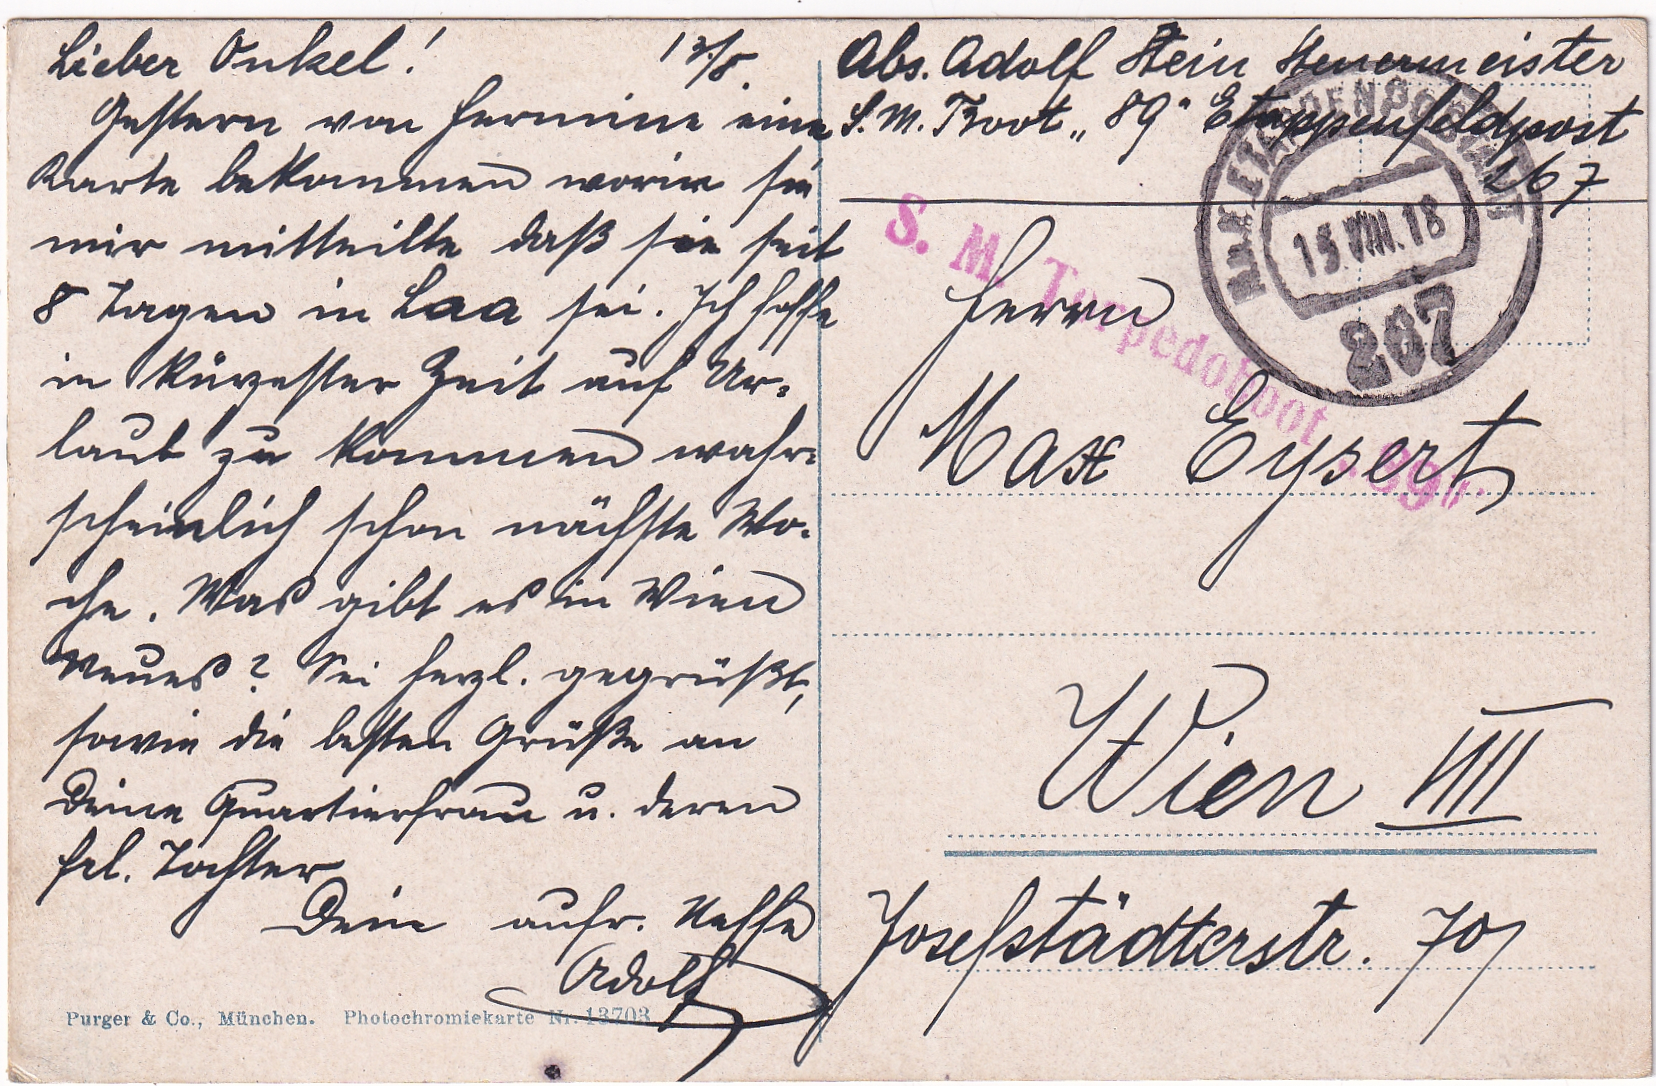 Lieber Onkel! 13/8.
Gestern von Hermine eine
Karte bekommen worin sie
mir mitteilte daß sie seit
8 Tagen in Laa sei. Ich hoffe
in kürzester Zeit auf Ur-
laub zu kommen wahr-
scheinlich schon nächste Wo-
che. Was gibt es in Wien
Neues? Sei herzl. gegrüßt,
sowie die besten Grüße an
Deine Quartierfrau u. deren
Frl. Tochter
Dein aufr. Neffe
Adolf
Purger & Co., München. Photochromiekarte Nr. 13703
Abs. Adolf Stein Steuermeister
S.M. Tboot „89" Etappenfeldpost
267
S. M. Torpedoboot „89"
K.u.K. ETAPPENPOSTAMT
15.VIII.18
267
Herrn
Max Eysert
Wien VIII
Josefstädterstr. 70